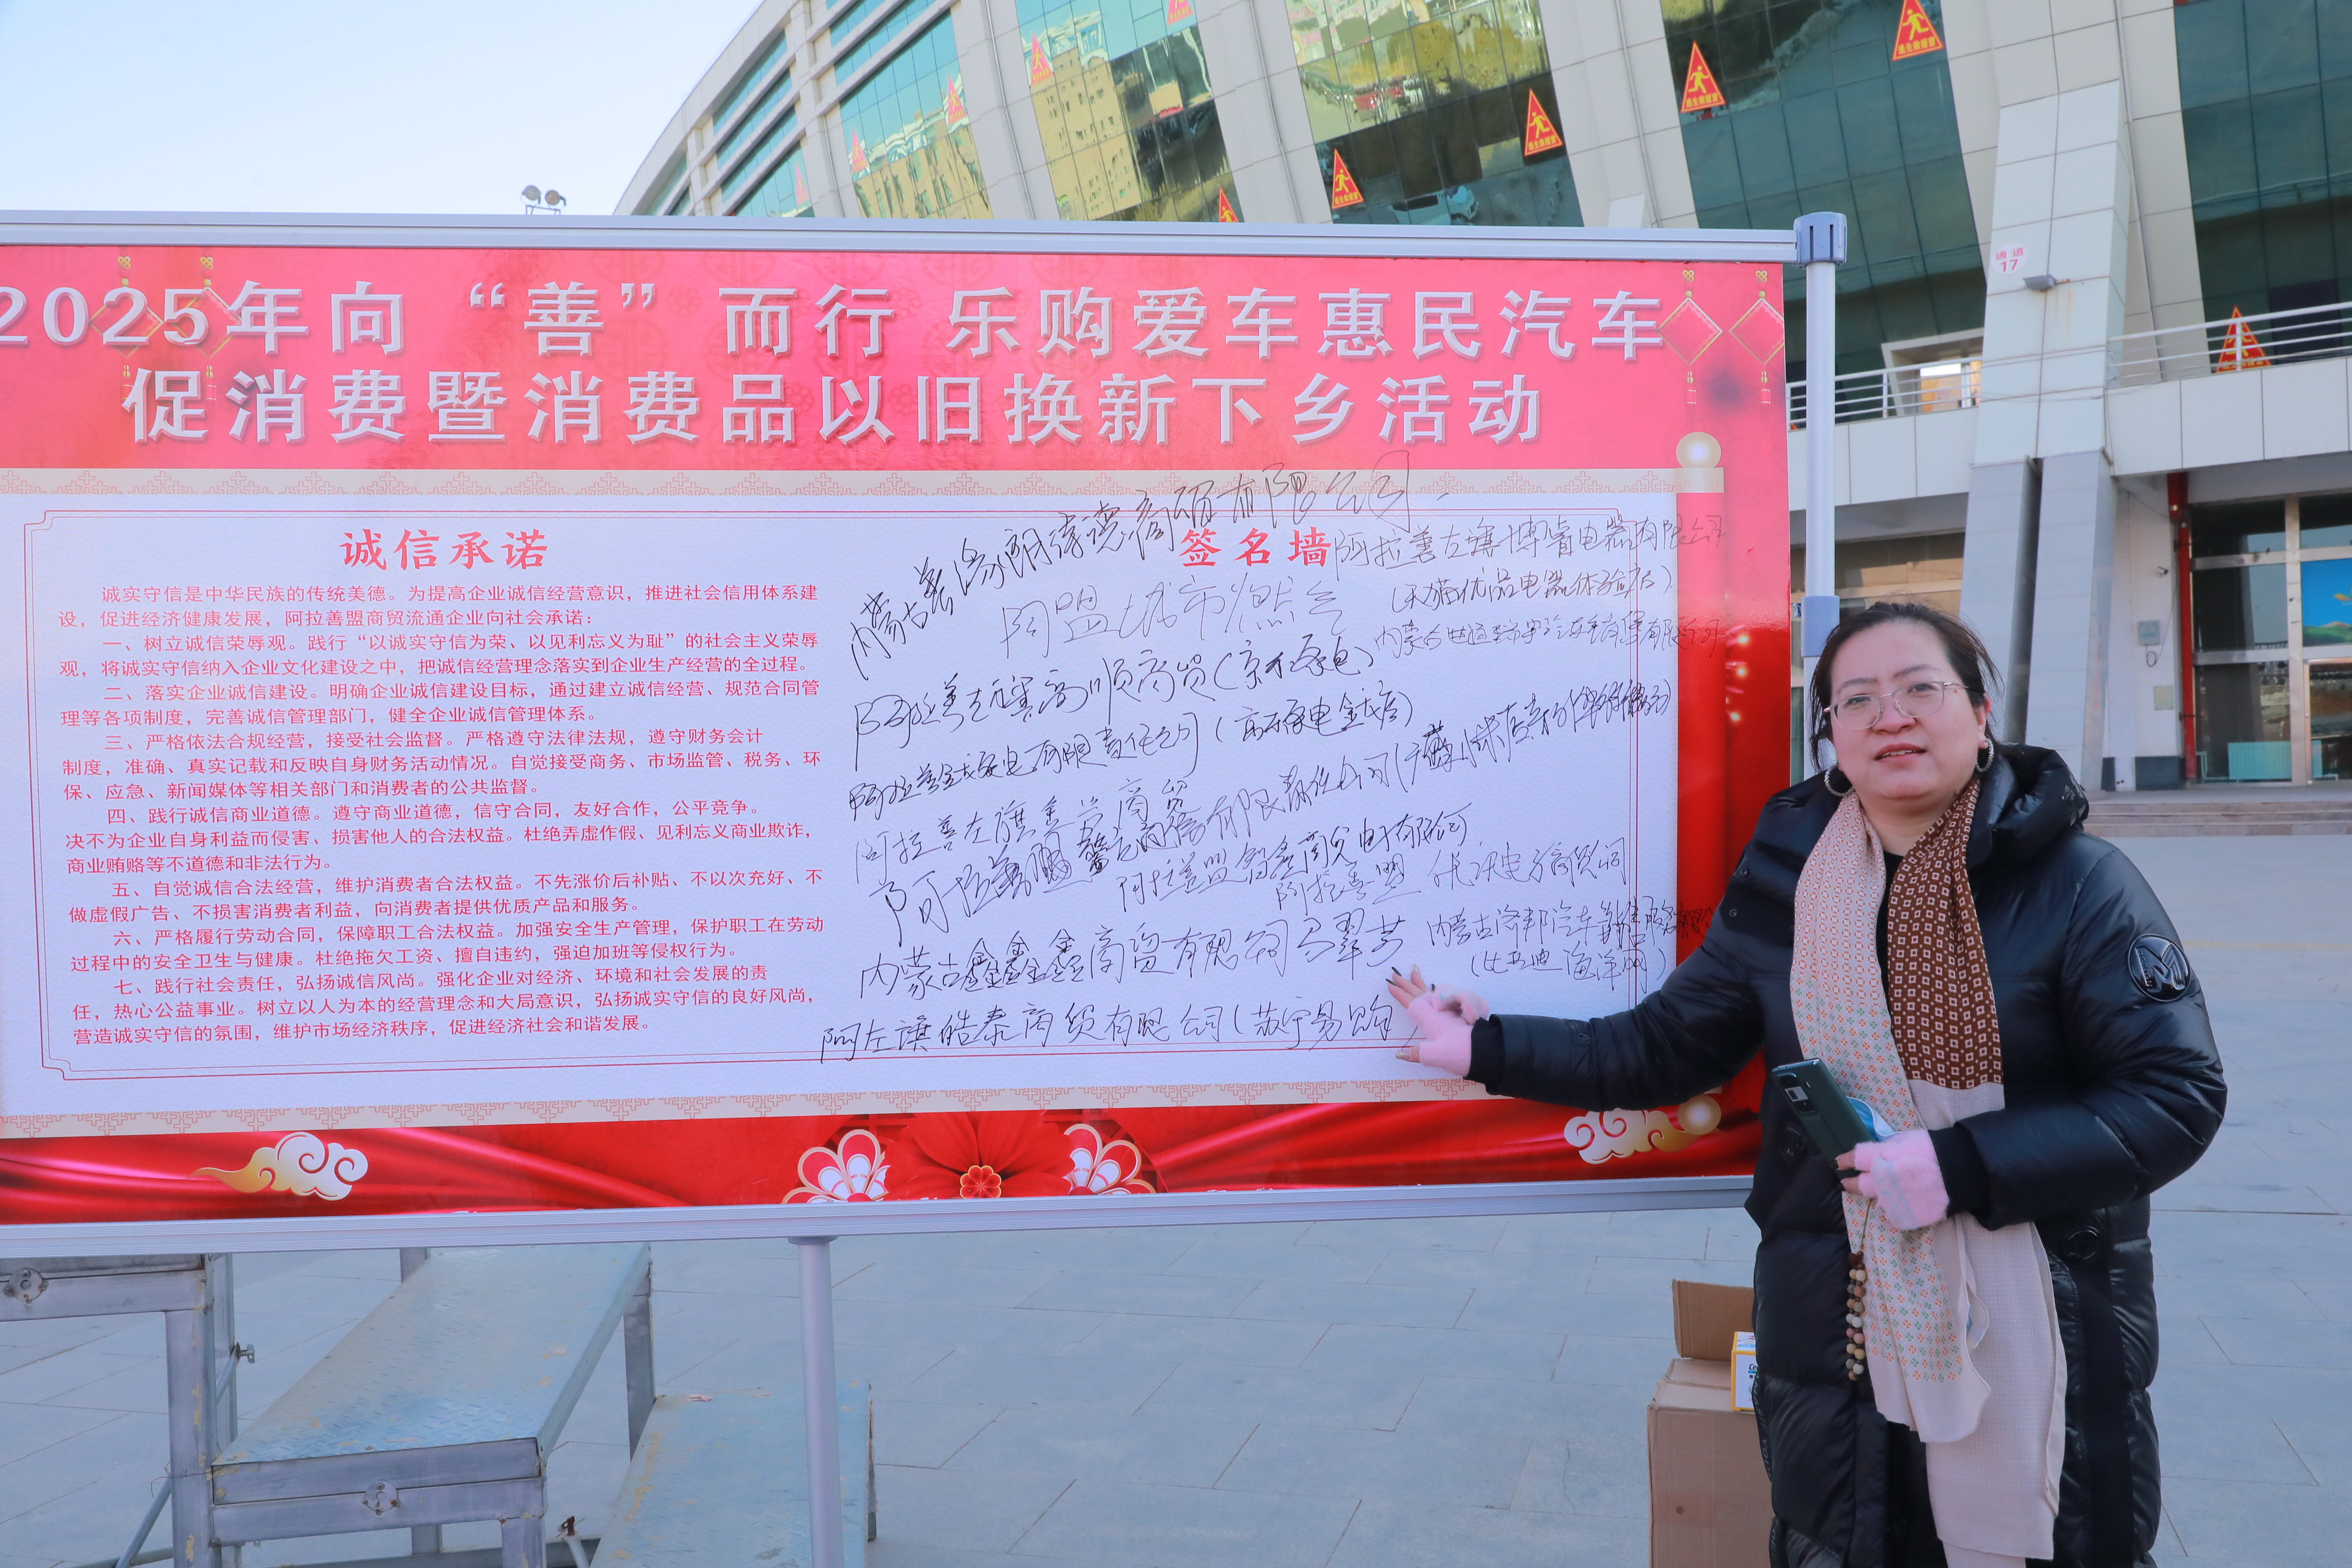 2025年向“善”而行 乐购爱车惠民汽车
促消费暨消费品以旧换新下乡活动
诚信承诺
诚实守信是中华民族的传统美德。为提高企业诚信经营意识，推进社会信用体系建
设，促进经济健康发展，阿拉善盟商贸流通企业向社会承诺：
一、树立诚信荣辱观。践行“以诚实守信为荣、以见利忘义为耻”的社会主义荣辱
观，将诚实守信纳入企业文化建设之中，把诚信经营理念落实到企业生产经营的全过程。
二、落实企业诚信建设。明确企业诚信建设目标，通过建立诚信经营、规范合同管
理等各项制度，完善诚信管理部门，健全企业诚信管理体系。
三、严格依法合规经营，接受社会监督。严格遵守法律法规，遵守财务会计
制度，准确、真实记载和反映自身财务活动情况。自觉接受商务、市场监管、税务、环
保、应急、新闻媒体等相关部门和消费者的公共监督。
四、践行诚信商业道德。遵守商业道德，信守合同，友好合作，公平竞争。
决不为企业自身利益而侵害、损害他人的合法权益。杜绝弄虚作假、见利忘义商业欺诈，
商业贿赂等不道德和非法行为。
五、自觉诚信合法经营，维护消费者合法权益。不先涨价后补贴、不以次充好、不
做虚假广告、不损害消费者利益，向消费者提供优质产品和服务。
六、严格履行劳动合同，保障职工合法权益。加强安全生产管理，保护职工在劳动
过程中的安全卫生与健康。杜绝拖欠工资、擅自违约，强迫加班等侵权行为。
七、践行社会责任，弘扬诚信风尚。强化企业对经济、环境和社会发展的责
任，热心公益事业。树立以人为本的经营理念和大局意识，弘扬诚实守信的良好风尚，
营造诚实守信的氛围，维护市场经济秩序，促进经济社会和谐发展。
签名墙
商贸有限公司
阿拉善左旗博睿电器有限公司
（天猫优品电器体验店）
阿盟城市燃气
阿拉善左旗高顺商贸（京东家电）
有限责任公司（京东家电金戈店）
阿拉善左旗
商贸
阿拉善盟
内蒙古鑫鑫商贸有限公司
（比亚迪海洋网）
阿左旗皓泰商贸有限公司（苏宁易购）
通道
17
逃生救援窗
逃生救援窗
逃生救援窗
逃生救援窗